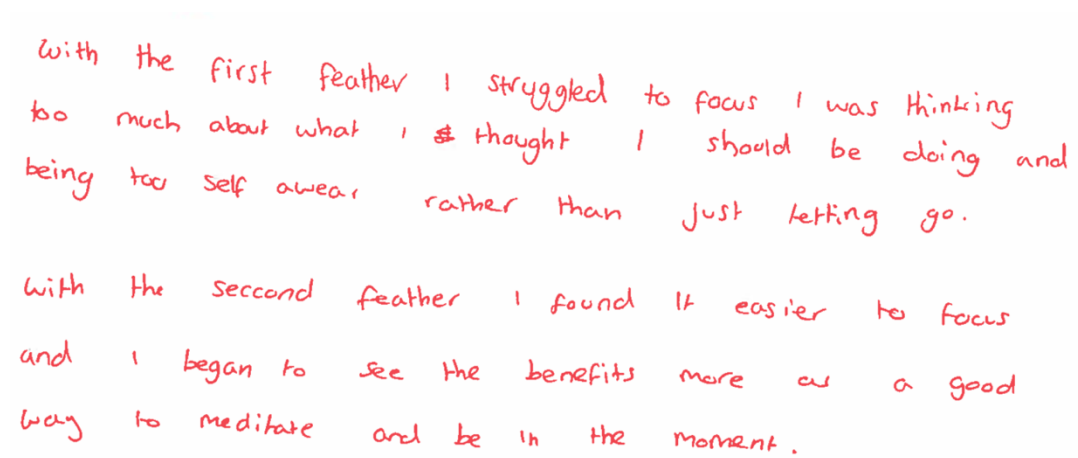 with the first feather I struggled to focus I was thinking
too much about what I thought I should be doing and
being too self awear rather than just letting go.
with the seccond feather I found It easier to focus
and I began to see the benefits more as a good
way to meditate and be in the moment.